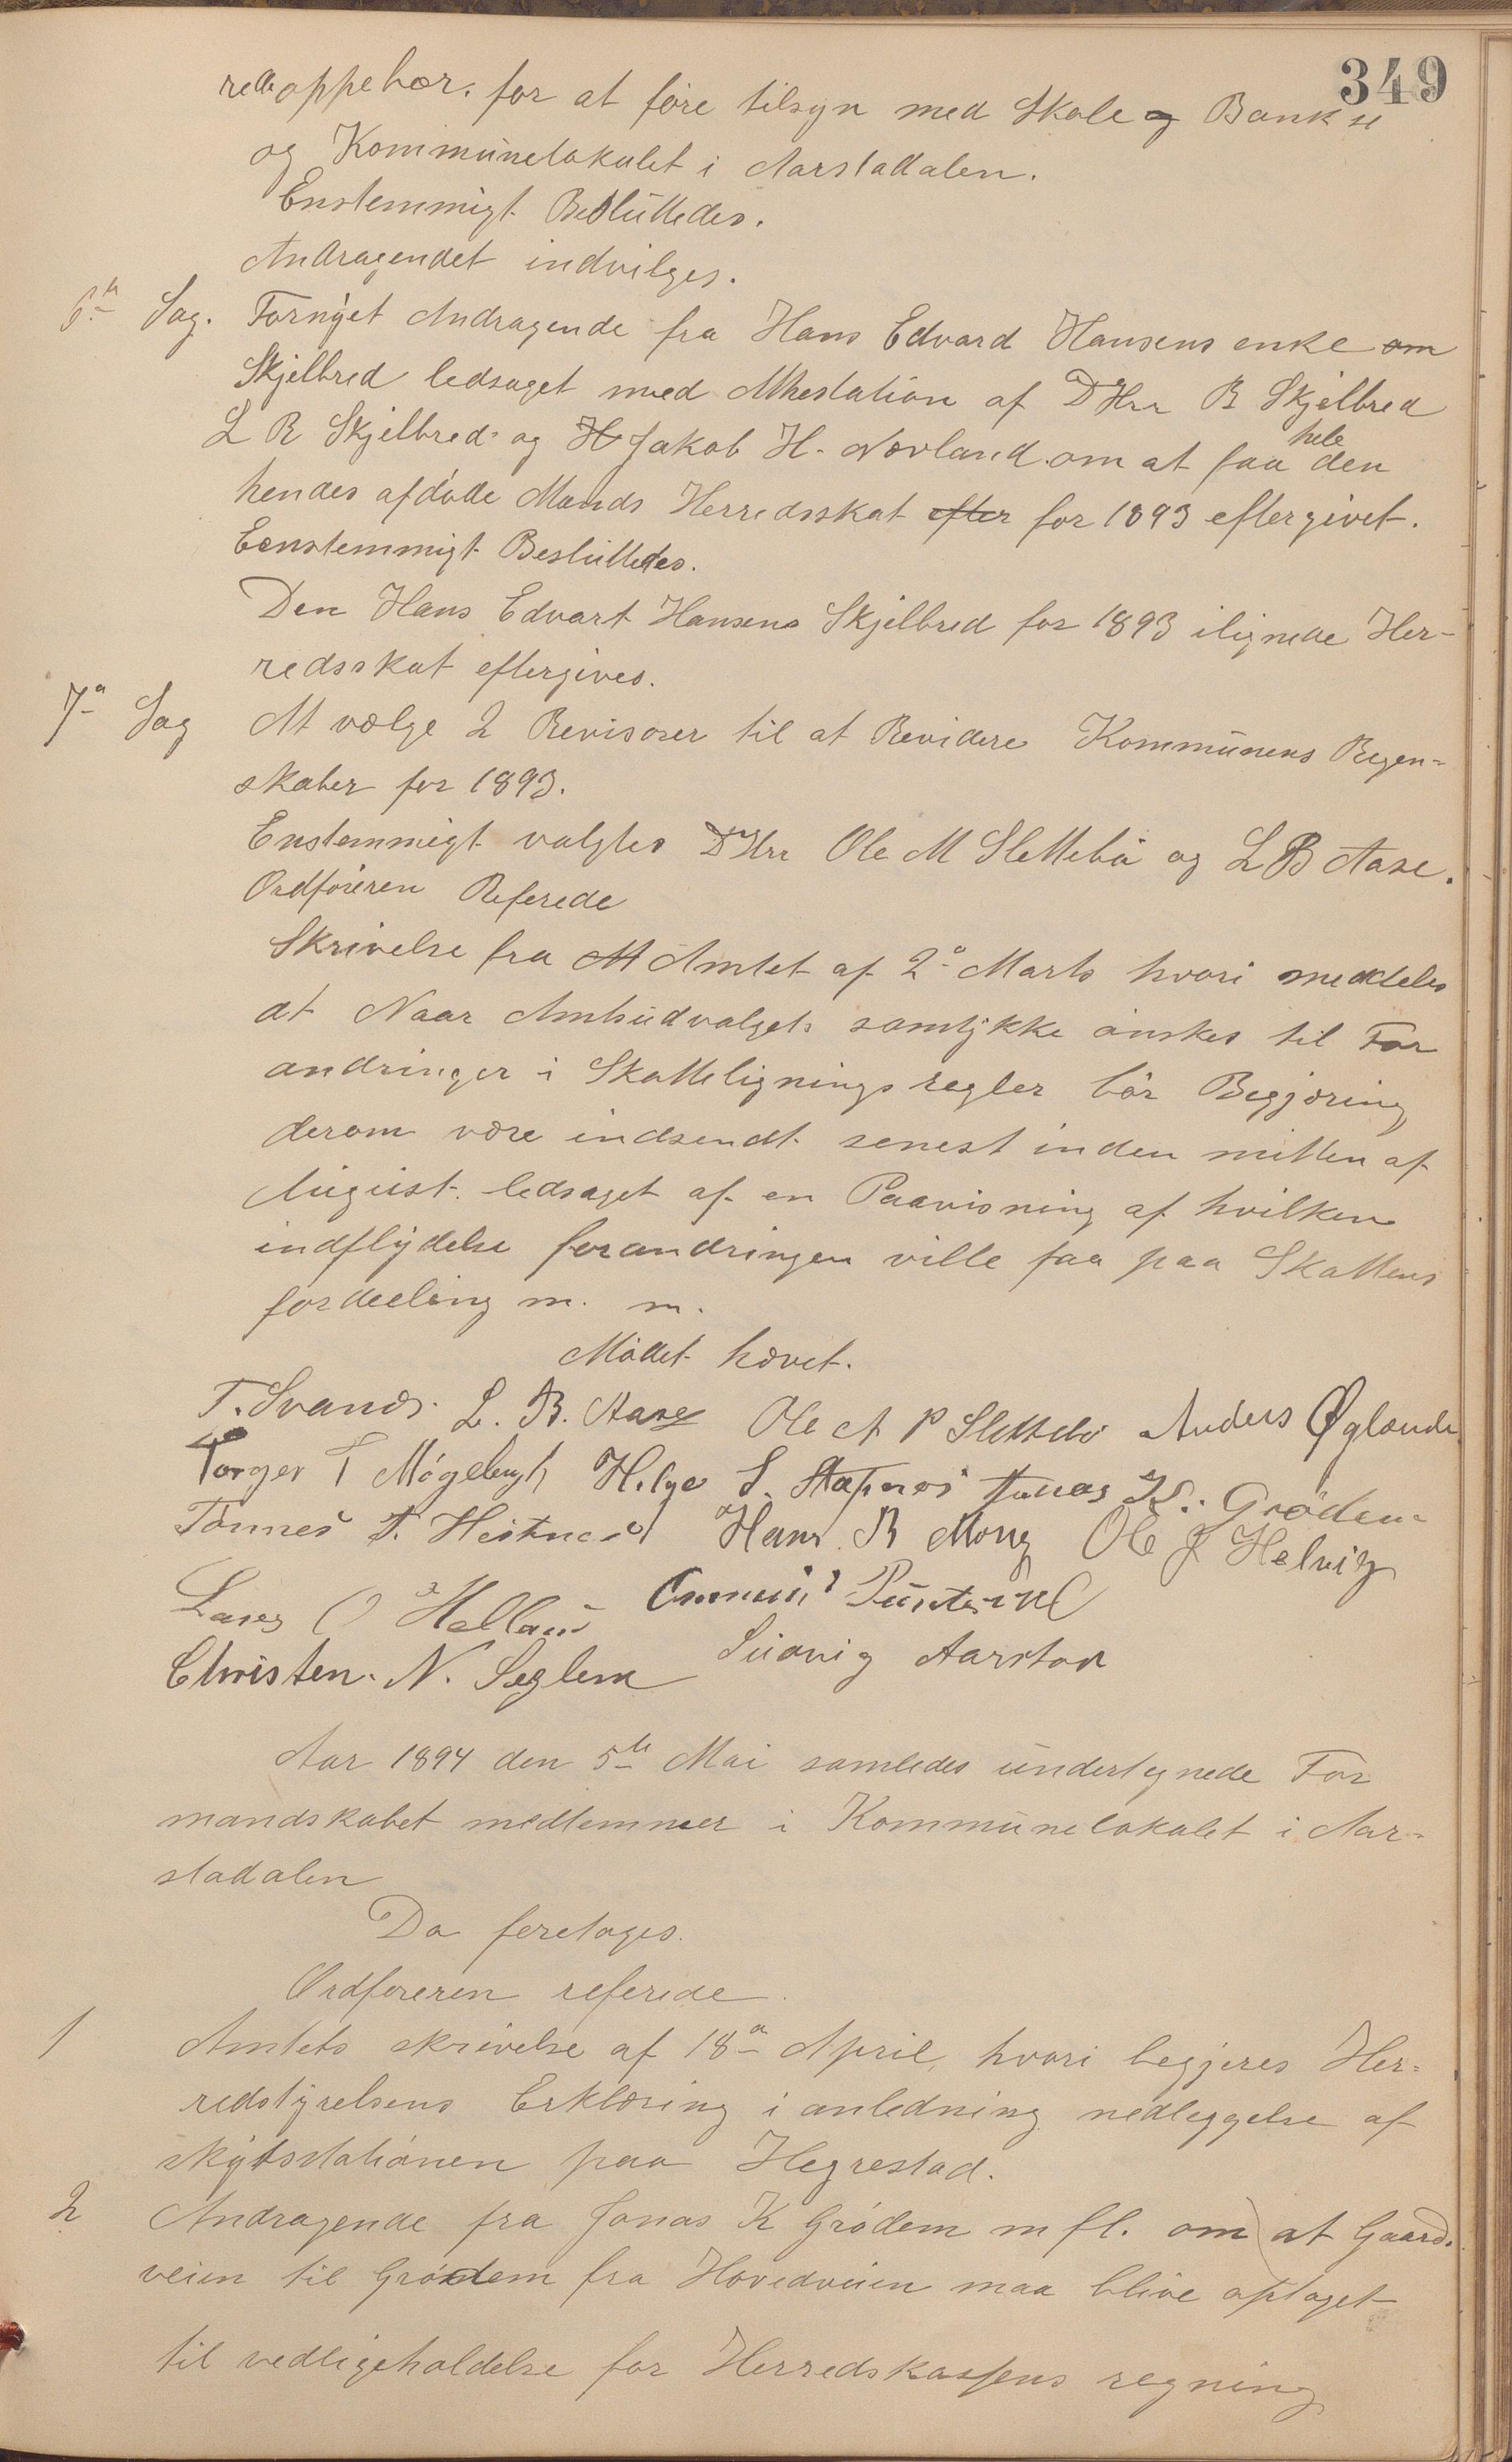 349
oppebær. for at føre tilsyn med Skole og Bank
og Kommunelokalet i Aarstadalen.
Enstemmigt Besluttedes.
Andragendet indvilges.
6te Sag. Fornyet Andragende fra Hans Edvard Hansens enke om
Skjelbred ledsaget med Athestation af DHrr R Skjelbred
L R Skjelbred og H Jakob H. Nævland om at faa hele den
hendes afdøde Mands Herredsskat efter for 1893 eftergivet.
Eenstemmigt Besluttedes.
Den Hans Edvart Hansens Skjelbred for 1893 ilignede Her-
redsskat eftergives.
7de Sag At vælge 2 Revisorer til at Revidere Kommunens Regen-
skaber for 1893.
Enstemmigt valgtes DHrr Ole M Slettebø og L B Aase.
Ordføreren Referede
Skrivelse fra Amtet af 2den Marts hvori meddeles
at Naar Amtsudvalgets samtykke ønskes til For
andringer i Skatteligningsregler bør Begjæring
derom være indsendt senest inden mitten af
August. ledsaget af en Paavisning af hvilken
indflydelse forandringen ville faa paa Skattens
fordeeling m. m.
Mødet hævet.
T. Svanes. L. B. Aase Ole A P Slettebø Anders Øglænd
Torger T Møgelengh Helge S. Stapnes Jonas K. Grødem
Tønnes T. Hestnes Hans R Mong Ole J Helvig
Lars O Helland Ommund Puntervol
Christen. N. Seglem Sudvig Aarstad
Aar 1894 den 5te Mai samledes undertegnede For
mandskabet medlemmer i Kommunelokalet i Aar-
stadalen
Da foretages.
Ordføreren referede.
1 Amtets skrivelse af 18de April, hvori begjeres Her-
redstyrelsens Erklæring i anledning nedleggelse af
skydsstationen paa Hegrestad.
2 Andragende fra Jonas K Grødem m fl. om at Gaard.
veien til Grødem fra Hovedveien maa blive optaget
til vedligeholdelse for Herredskassens regning